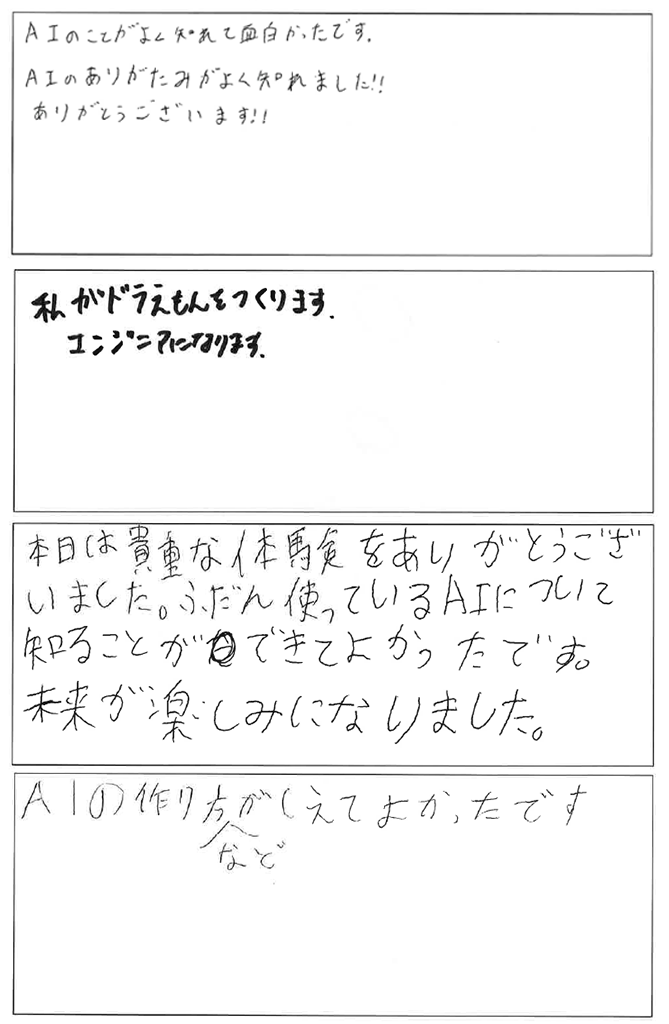 AIのことがよく知れて面白かったです.
AIのありがたみがよく知れました!!
ありがとうございます!!
私がドラえもんをつくります.
エンジニアになります.
本日は貴重な体験をありがとうござ
いました。ふだん使っているAIについて
知ることができてよかったです。
未来が楽しみになりました。
AIの作り方がしえてよかったです
など